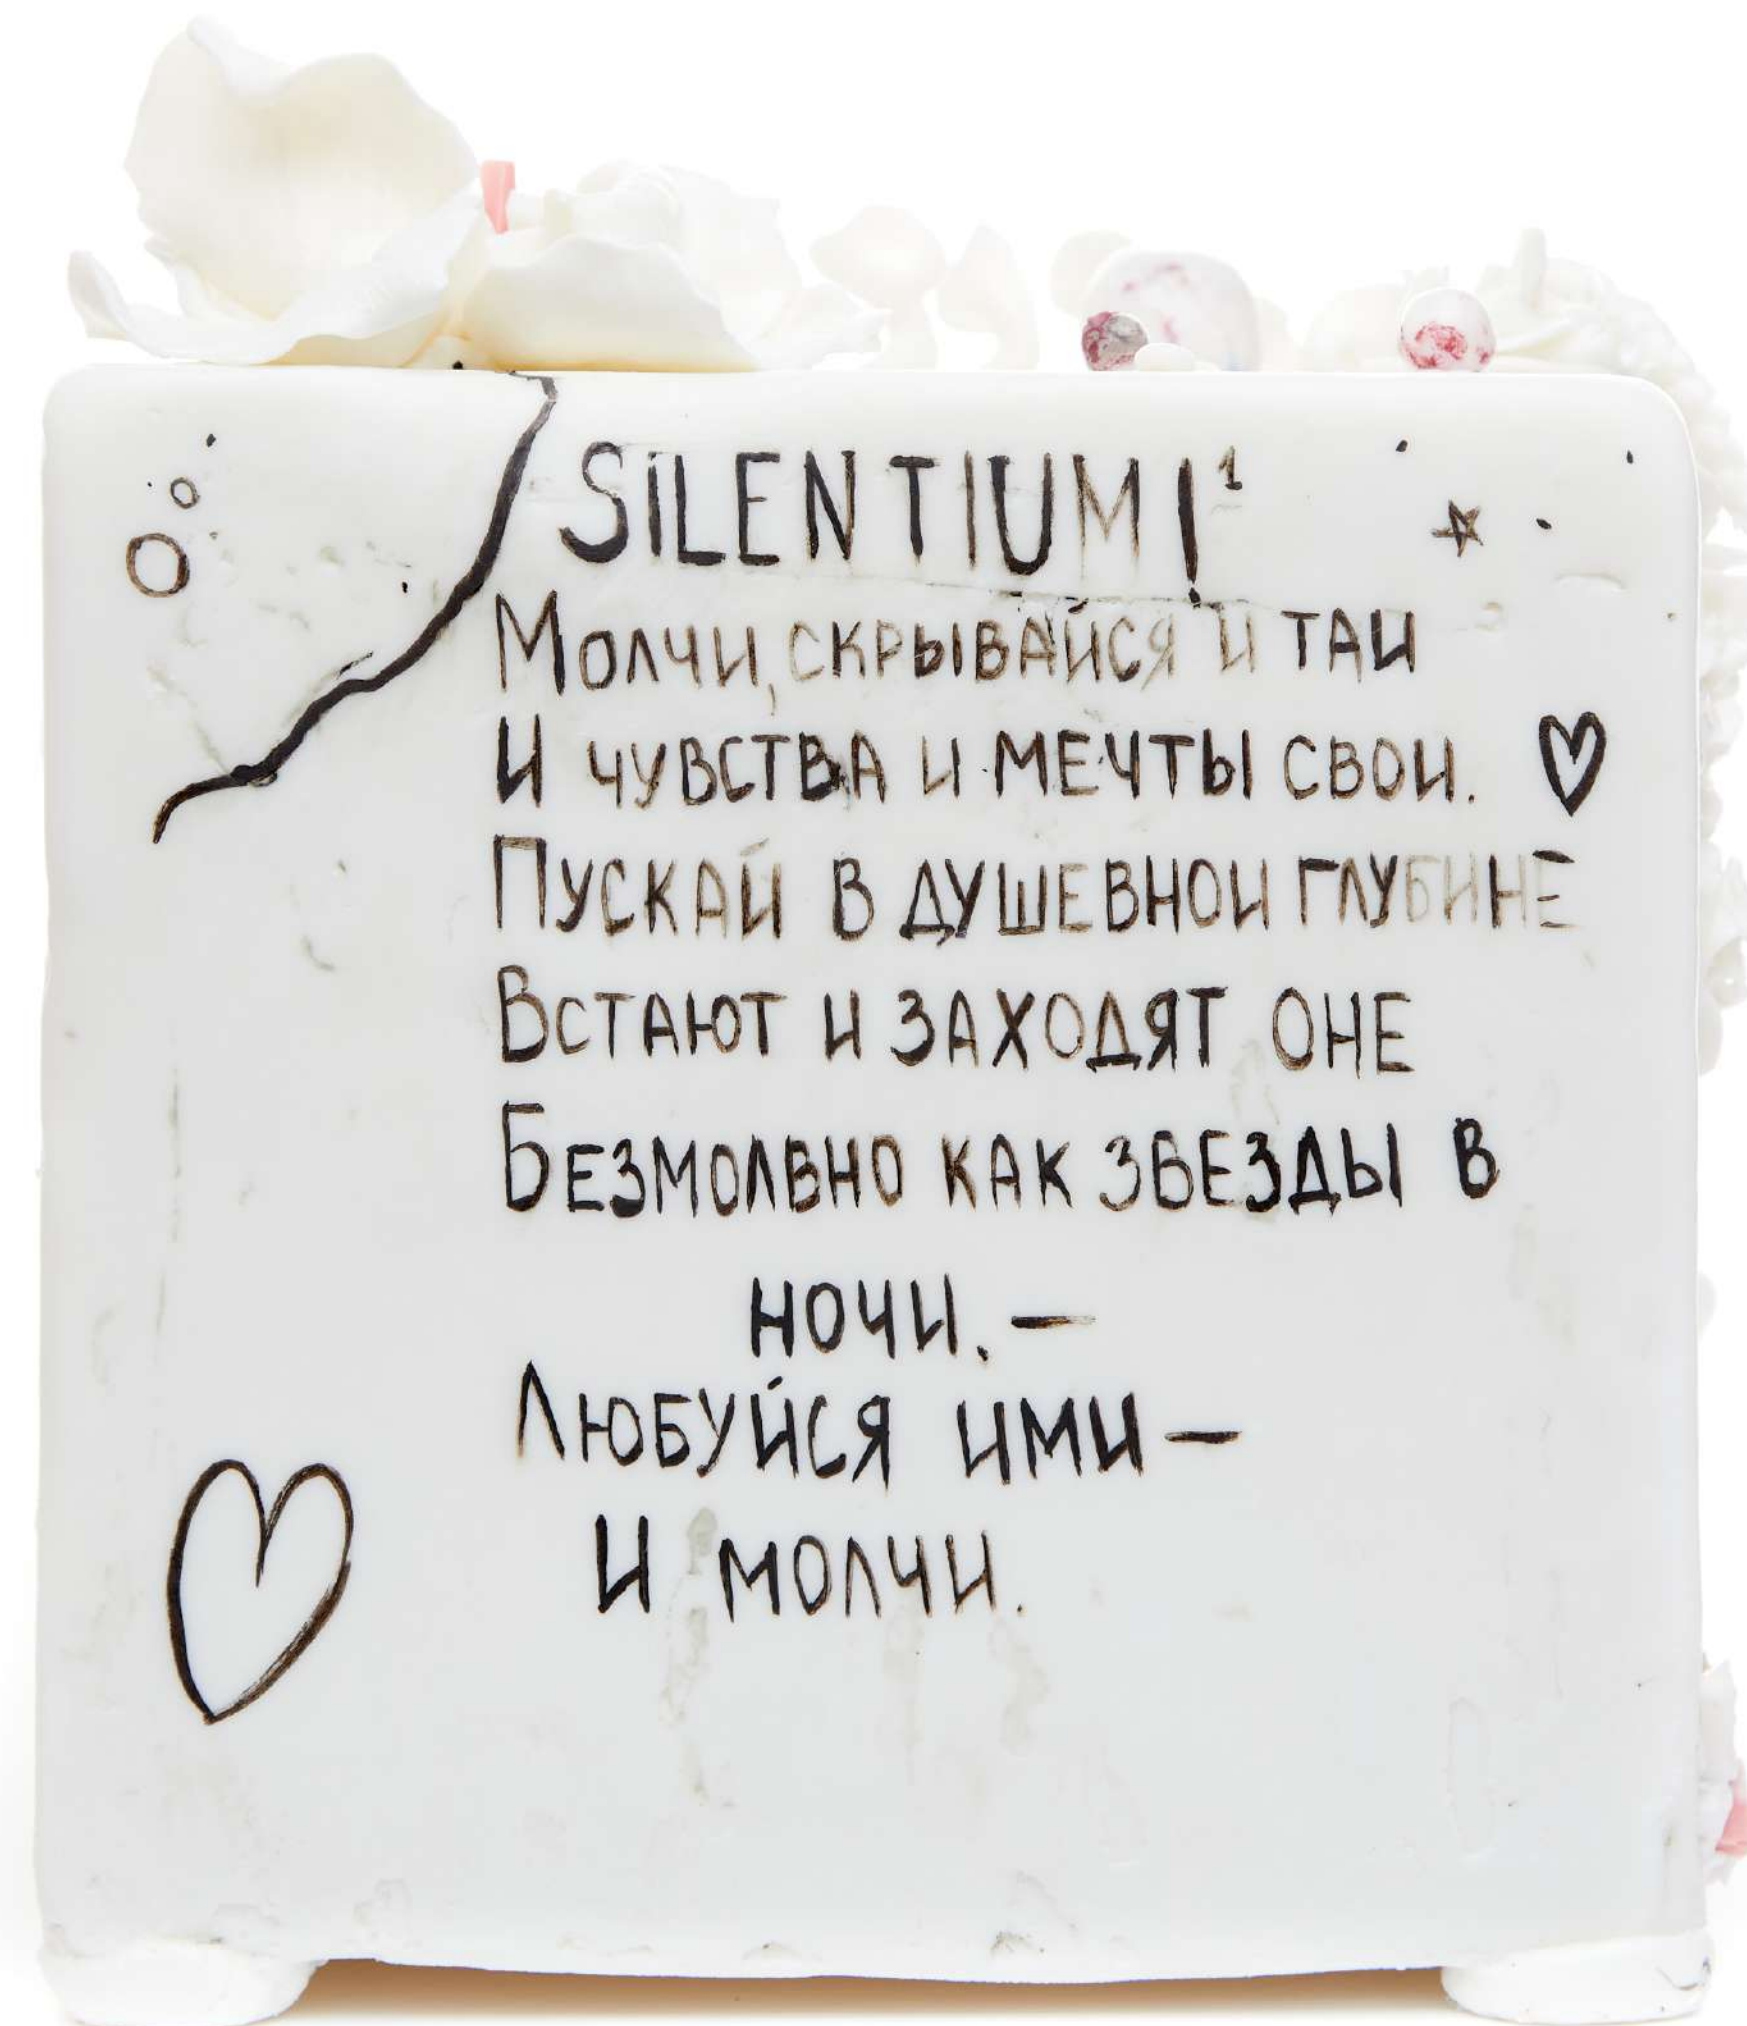 SILENTIUM!¹
Молчи, скрывайся и таи
И чувства и мечты свои.
Пускай в душевной глубине
Встают и заходят оне
Безмолвно как звезды в
ночи. —
Любуйся ими —
И молчи.